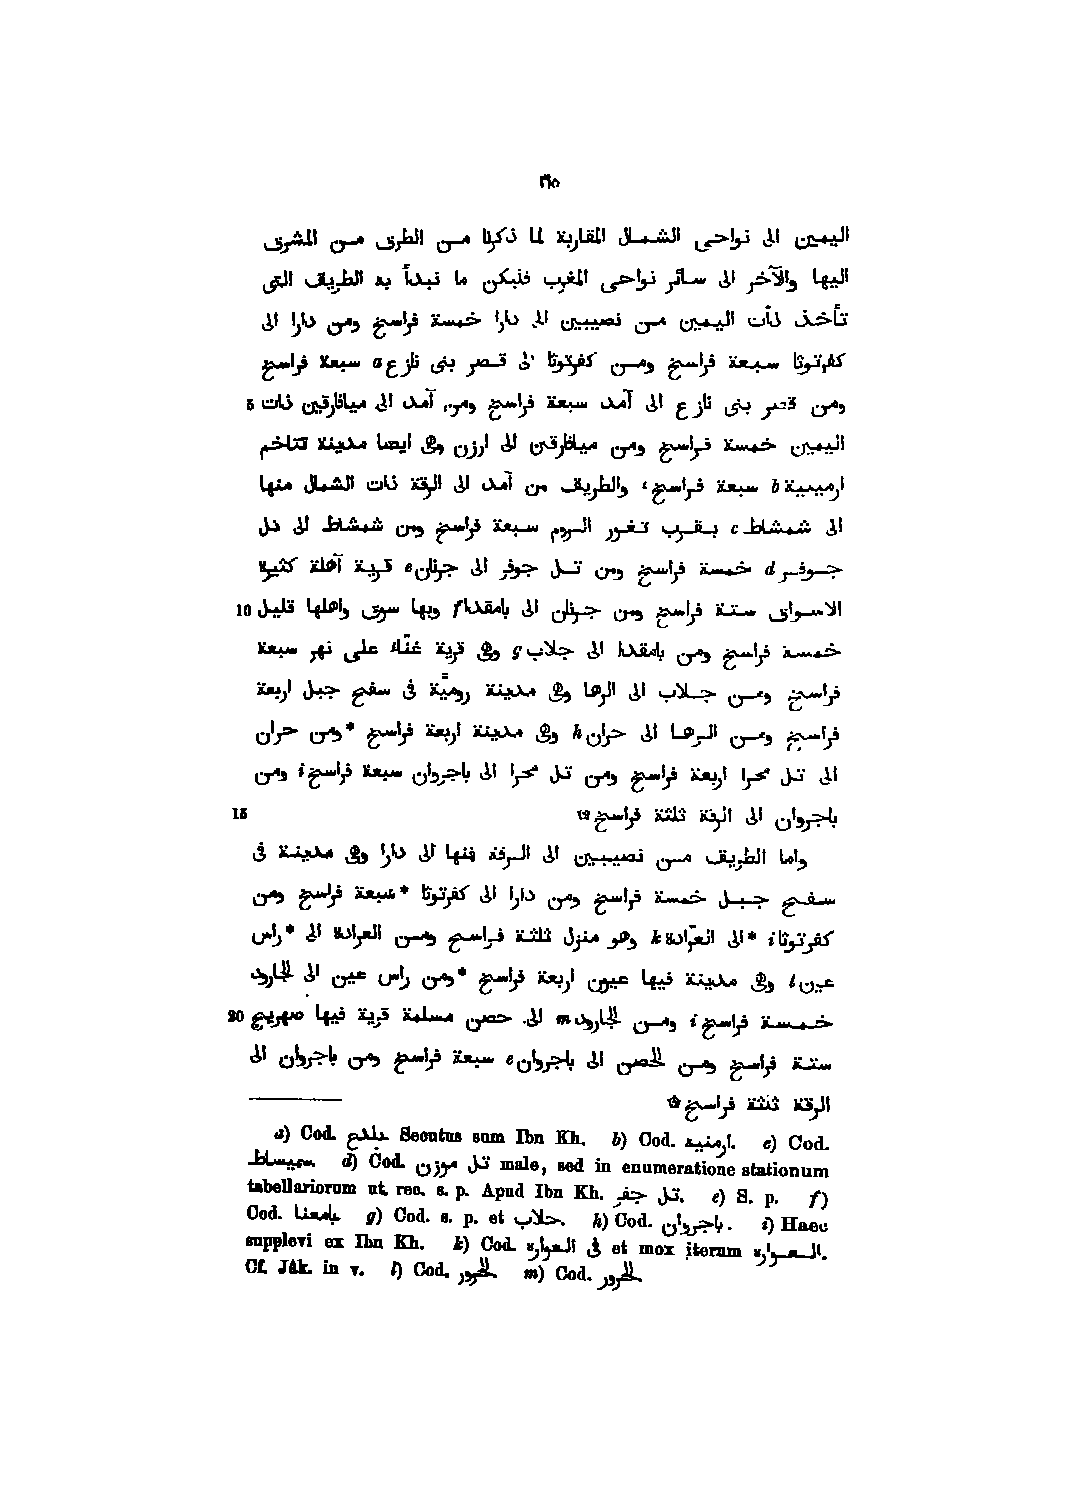 ٢١٥
اليمين الى نواحى الشمال المقاربة لما ذكرنا من الطرق من المشرق
اليها والآخر الى سائر نواحى المغرب فليكن ما نبدأ به الطريق التى
تأخذ ذات اليمين من نصيبين الى دارا خمسة فراسخ ومن دارا الى
كفرتوثا سبعة فراسخ ومن كفرتوثا الى قصر بنى نازع a سبعة فراسخ
ومن قصر بنى نازع الى آمد سبعة فراسخ ومن آمد الى ميافارقين ذات 5
اليمين خمسة فراسخ ومن ميافارقين الى ارزن وهى ايضا مدينة تتاخم
ارمينية b سبعة فراسخ، والطريق من آمد الى الرقة ذات الشمال منها
الى شمشاط c بقرب ثغور الروم سبعة فراسخ ومن شمشاط الى تل
جوفر d خمسة فراسخ ومن تل جوفر الى جرنان e قرية آهلة كثيرة
الاسواق ستة فراسخ ومن جرنان الى بامقدا f وبها سوق واهلها قليل 10
خمسة فراسخ ومن بامقدا الى جلاب g وهى قرية غنّاء على نهر سبعة
فراسخ ومن جلاب الى الرها وهى مدينة روميّة فى سفح جبل اربعة
فراسخ ومن الرها الى حران h وهى مدينة اربعة فراسخ *ومن حران
الى تل محرا اربعة فراسخ ومن تل محرا الى باجروان سبعة فراسخ i ومن
باجروان الى الرقة ثلثة فراسخ ۞ 15
واما الطريق من نصيبين الى الرقة فنها الى دارا وهى مدينة فى
سفح جبل خمسة فراسخ ومن دارا الى كفرتوثا *سبعة فراسخ ومن
كفرتوثا i *الى العرّادة k وهو منزل ثلثة فراسخ ومن العرادة الى *راس
عين l وهى مدينة فيها عيون اربعة فراسخ *ومن راس عين الى الجارود
خمسة فراسخ i ومن الجارود m الى حصن مسلمة قرية فيها صهريج 20
ستة فراسخ ومن الحصن الى باجروان e سبعة فراسخ ومن باجروان الى
الرقة ثلثة فراسخ ۞
a) Cod. Secutus sum Ibn Kh. b) Cod. ارمنيه. c) Cod.
سميساط. d) Cod. تل موزن male, sed in enumeratione stationum
tabellariorum ut rec. s. p. Apud Ibn Kh. تل جفر. e) S. p. f)
Cod. بامعنا g) Cod. s. p. et حلاب. h) Cod. باجروان. i) Haec
supplevi ex Ibn Kh. k) Cod. فى العواره et mox iterum العواره.
Cf. Jâk. in v. l) Cod. الخرور. m) Cod. الخرور.